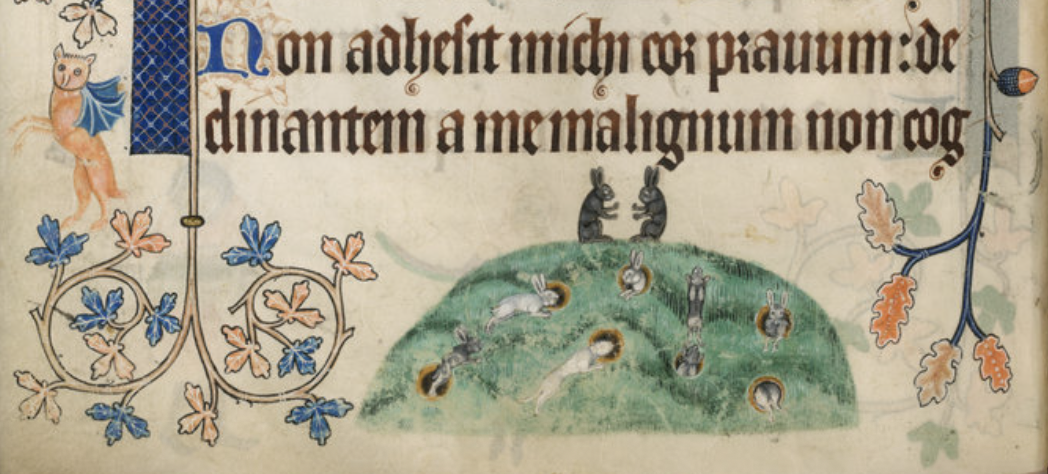 Non adhesit michi cor prauum: de
clinantem a me malignum non cog